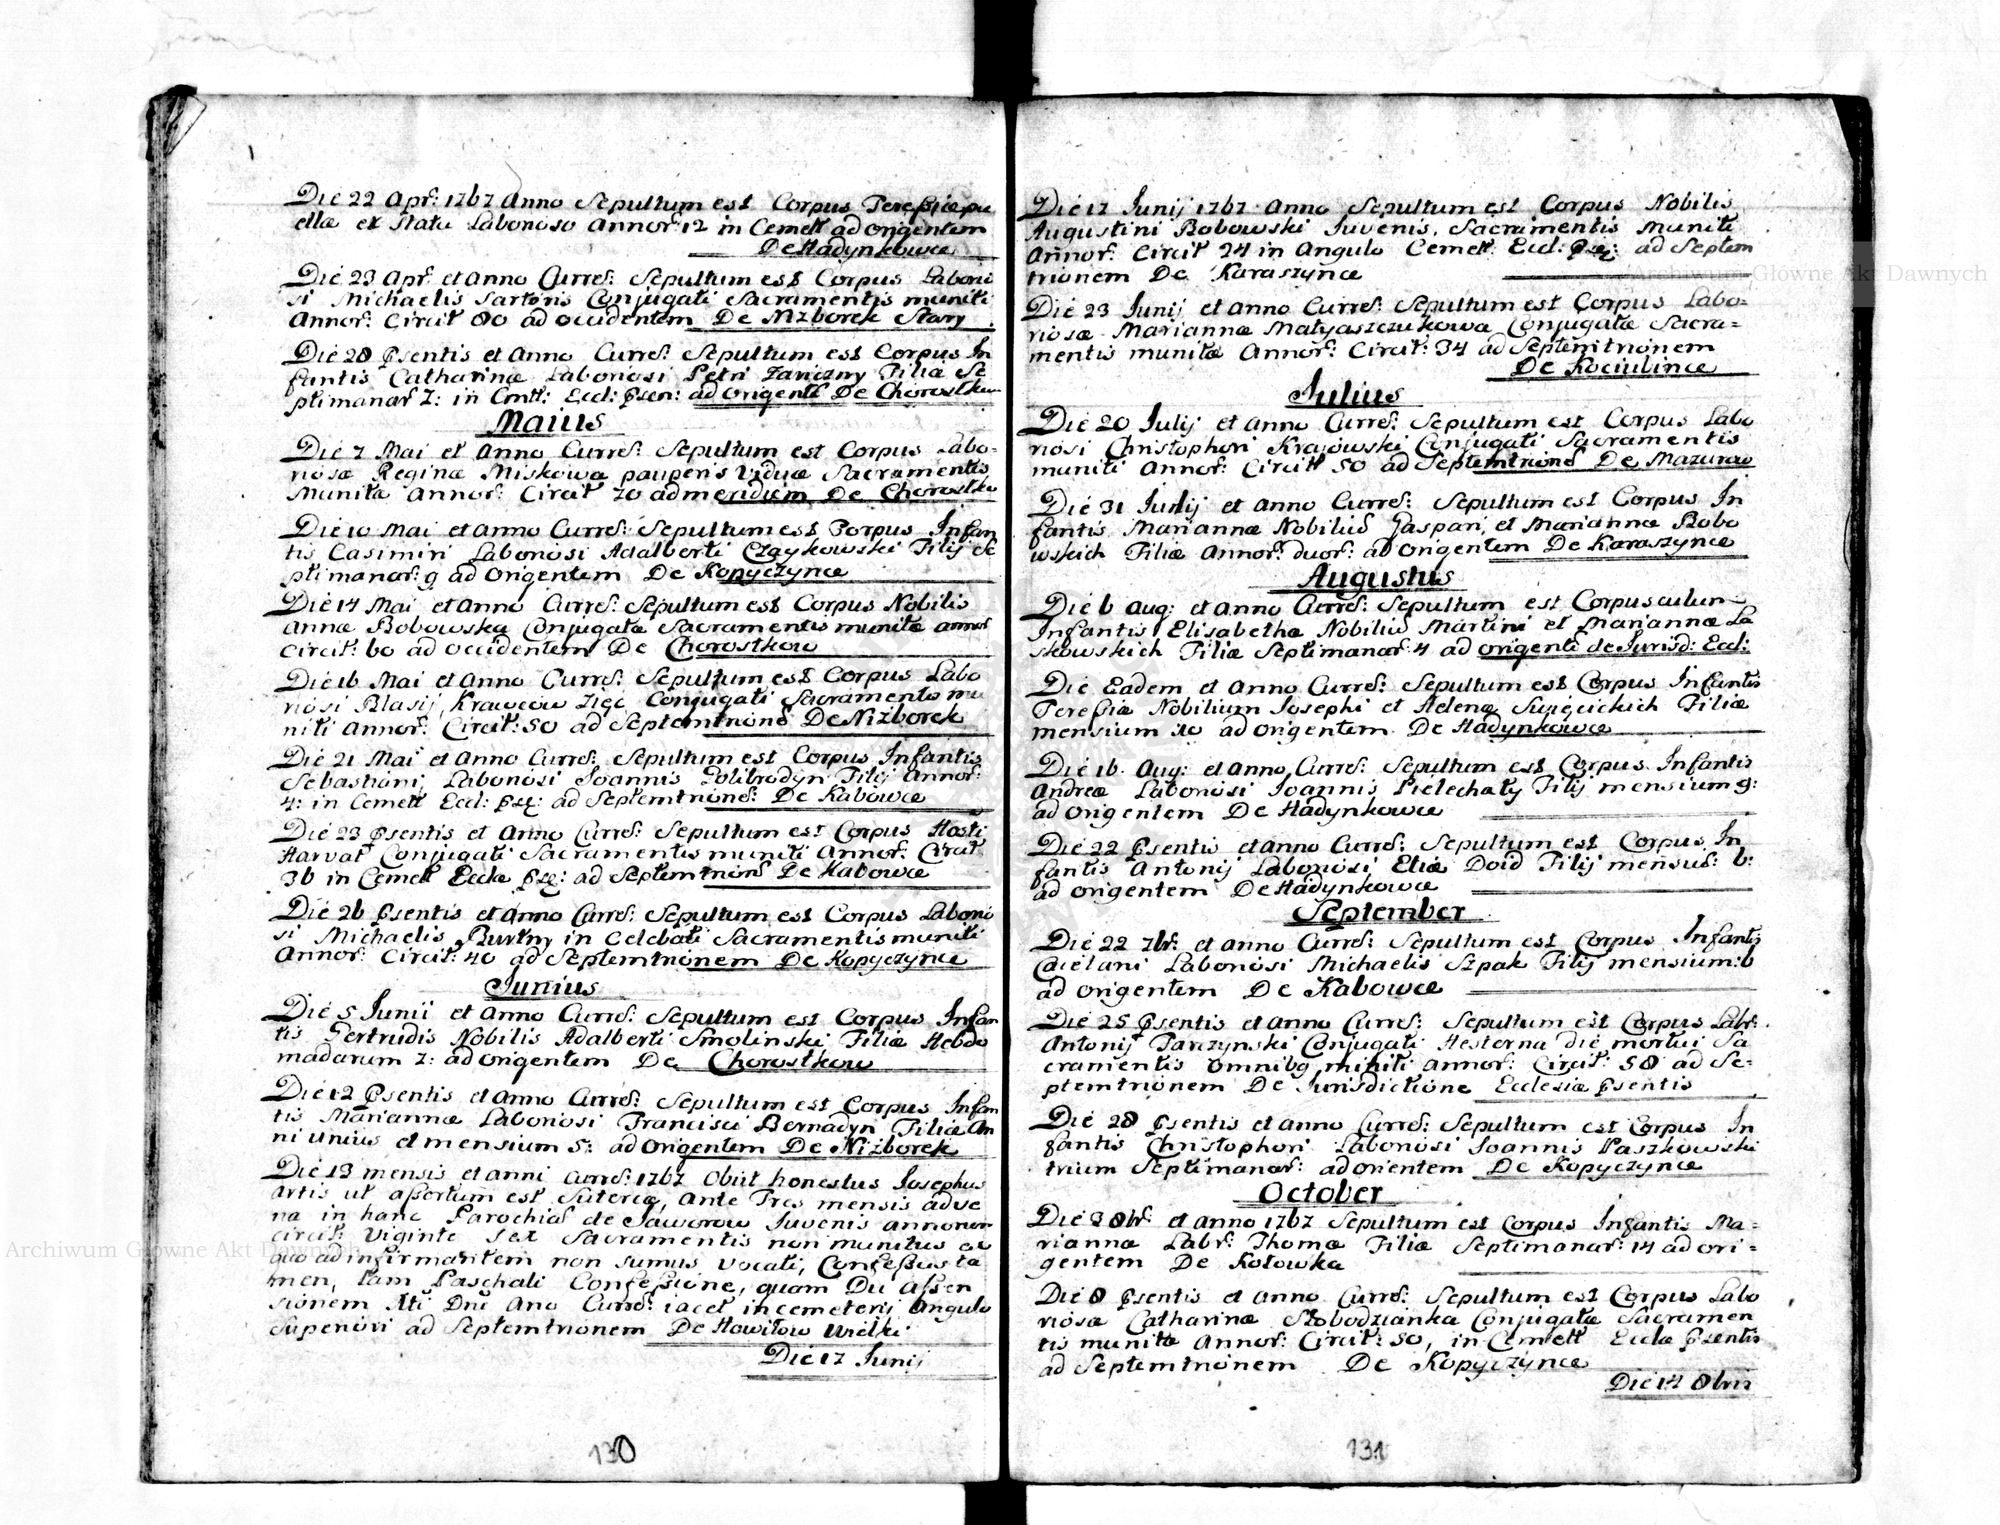 Die 22 Apr: 1767 Anno Sepultum est Corpus Teresiæ pu
ellæ ex statu Laborioso Annor: 12 in Cemett ad origentem
De Hadynkowce
Die 23 Apr: et Anno Curre: Sepultum est Corpus Labori
si Michaelis Sartoris Conjugati Sacramentis muniti
Annor: Circit 80 ad occidentem De Nizborek Stary
Die 28 Psentis et Anno Curre: Sepultum est Corpus In
fantis Catharinæ Laboriosi Petri Zariczny Filiæ Se
ptimanar 7: in Cmtt: Eccl: Psen: ad origente De Chorostkow
Maius
Die 7 Mai et Anno Curre: Sepultum est Corpus Labo-
riosæ Reginæ Miskowa pauperis viduæ Sacramentis
Munitæ Annor: Circit 70 ad meridiem De Chorostko
Die 10 Mai et Anno Curre: Sepultum est Corpus Infan
tis Casimiri Laboriosi Adalberti Czaykowski Filij se
ptimanar: 9 ad Origentem De Kopyczynce
Die 14 Mai et Anno Curre: Sepultum est Corpus Nobilis
Annæ Bobowska Conjugatæ Sacramentis munitæ annor
circit: 60 ad occidentem De Chorostkow
Die 16 Mai et Anno Curre: Sepultum est Corpus Labo
riosi Blasij Krawcow Zięc Conjugati Sacramentis mu
niti Annor: Circit: 50 ad Septemtrione De Niżborek
Die 21 Mai et Anno Curre: Sepultum est Corpus Infantis
Sebastiani Laboriosi Joannis Filij Annor:
4: in Cemett Eccl: Psę: ad Septemtrione: De Kabowce
Die 23 Psentis et Anno Curre: Sepultum est Corpus Hosti
Harvat Conjugati Sacramentis muniti Annor: Circit
36 in Cemett Eccla Psę: ad Septemtrion De Kabowce
Die 26 Psentis et Anno Curre: Sepultum est Corpus Labori
si Michaelis Burtny in Celebati Sacramentis muniti
Annor: Circit: 40 ad Septemtrionem De Kopyczynce
Junius
Die 5 Junii et Anno Curre: Sepultum est Corpus Infan
tis Gertrudis Nobilis Adalberti Smolinski Filiæ Hebdo
madarum 7: ad Origentem De Chorostkow
Die 12 Psentis et Anno Curre: Sepultum est Corpus Infan
tis Mariannæ Laboriosi Francisci Bernadyn Filiæ An
ni unius et mensium 5: ad Origentem De Niżborek
Die 13 mensis et anni Curre: 1767 Obiit honestus Josephus
Artis ut assertum est Sutereą, Ante Tres mensis adve
na in hanc Parochia de Jaworow Juvenis annorum
circit: Viginte sex Sacramentis non munitus ex
quo ad infirmantem non sumus vocati, Confessus ta
men, tam Paschali Confessione, quam Du Assen
sionem Xti Dni Ano Curre: iacet in cemeterij Angulo
superiori ad Septemtrionem De Howiłow Wielki
Die 17 Junij
130
Die 17 Junij 1767 Anno Sepultum est Corpus Nobilis
Augustini Bobowski Juvenis, Sacramentis Muniti
Annor: Circit 24 in Angulo Cemett: Eccl: Psę: ad Septem
trionem De Karaszynce
Die 23 Junij et Anno Curre: Sepultum est Corpus Labo-
riosæ Mariannæ Matyaszczukowa Conjugatæ Sacra-
mentis munitæ Annor: Circit: 34 ad Septemtrionem
De Kociubince
Julius
Die 20 Julij et Anno Curre: Sepultum est Corpus Labo
riosi Christophori Krajowski Conjugati Sacramentis
muniti Annor: Circitt 50 ad Septemtrione De Mazurow
Die 31 Julij et Anno Curre: Sepultum est Corpus In
fantis Mariannæ Nobiliu Gaspari et Mariannæ Bobo
wskich Filiæ Annor: duor: ad Origentem De Karaszynce
Augustus
Die 6 Aug: et Anno Curre: Sepultum est Corpusculum
Infantis Elisabethæ Nobiliu Martini et Mariannæ La
skowskich Filiæ Septimanar: 4 ad origente de Jurisd: Eccl:
Die Eadem et Anno Curre: Sepultum est Corpus Infantis
Teresiæ Nobilium Josephi et Helenæ Święcickich Filiæ
mensium 10 ad origentem De Hadynkowce
Die 16 Aug: et Anno Curre: Sepultum est Corpus Infantis
Andreæ Laboriosi Joannis Pielechaty Filij mensium 9:
ad Origentem De Hadynkowce
Die 22 Psentis et Anno Curre: Sepultum est Corpus In
fantis Antonij Laboriosi Eliæ Doid Filij mensiu: 6:
ad origentem De Hadynkowce
September
Die 22 7br: et Anno Curre: Sepultum est Corpus Infantis
Caietani Laboriosi Michaelis Szpak Filij mensium: 6
ad origentem De Kabowce
Die 25 Psentis et Anno Curre: Sepultum est Corpus Labr:
Antonij Tarzynski Conjugati Hesterna die mortui Sa
cramentis omnibg muniti Annor: Circit: 58 ad Se-
ptemtrionem De Jurisdictione Ecclesiæ Psentis
Die 28 Psentis et Anno Curre: Sepultum est Corpus In
fantis Christophori Laboriosi Joannis Paszkowski
trium Septimanar: ad orientem De Kopyczynce
October
Die 3 8br: et Anno 1767 Sepultum est Corpus Infantis Ma-
riannæ Labr: Thomæ Filiæ Septimanar: 14 ad ori-
gentem De Kotowka
Die 8 Psentis et Anno Curre: Sepultum est Corpus Labo
riosæ Catharinæ Słobodzianka Conjugatæ Sacramen
tis munitæ Annor: Circit: 50, in Cemett Eccla Psentis
ad Septemtrionem De Kopyczynce
Die 14 8bris
131
Archiwum Główne Akt Dawnych
Archiwum Główne Akt Dawnych